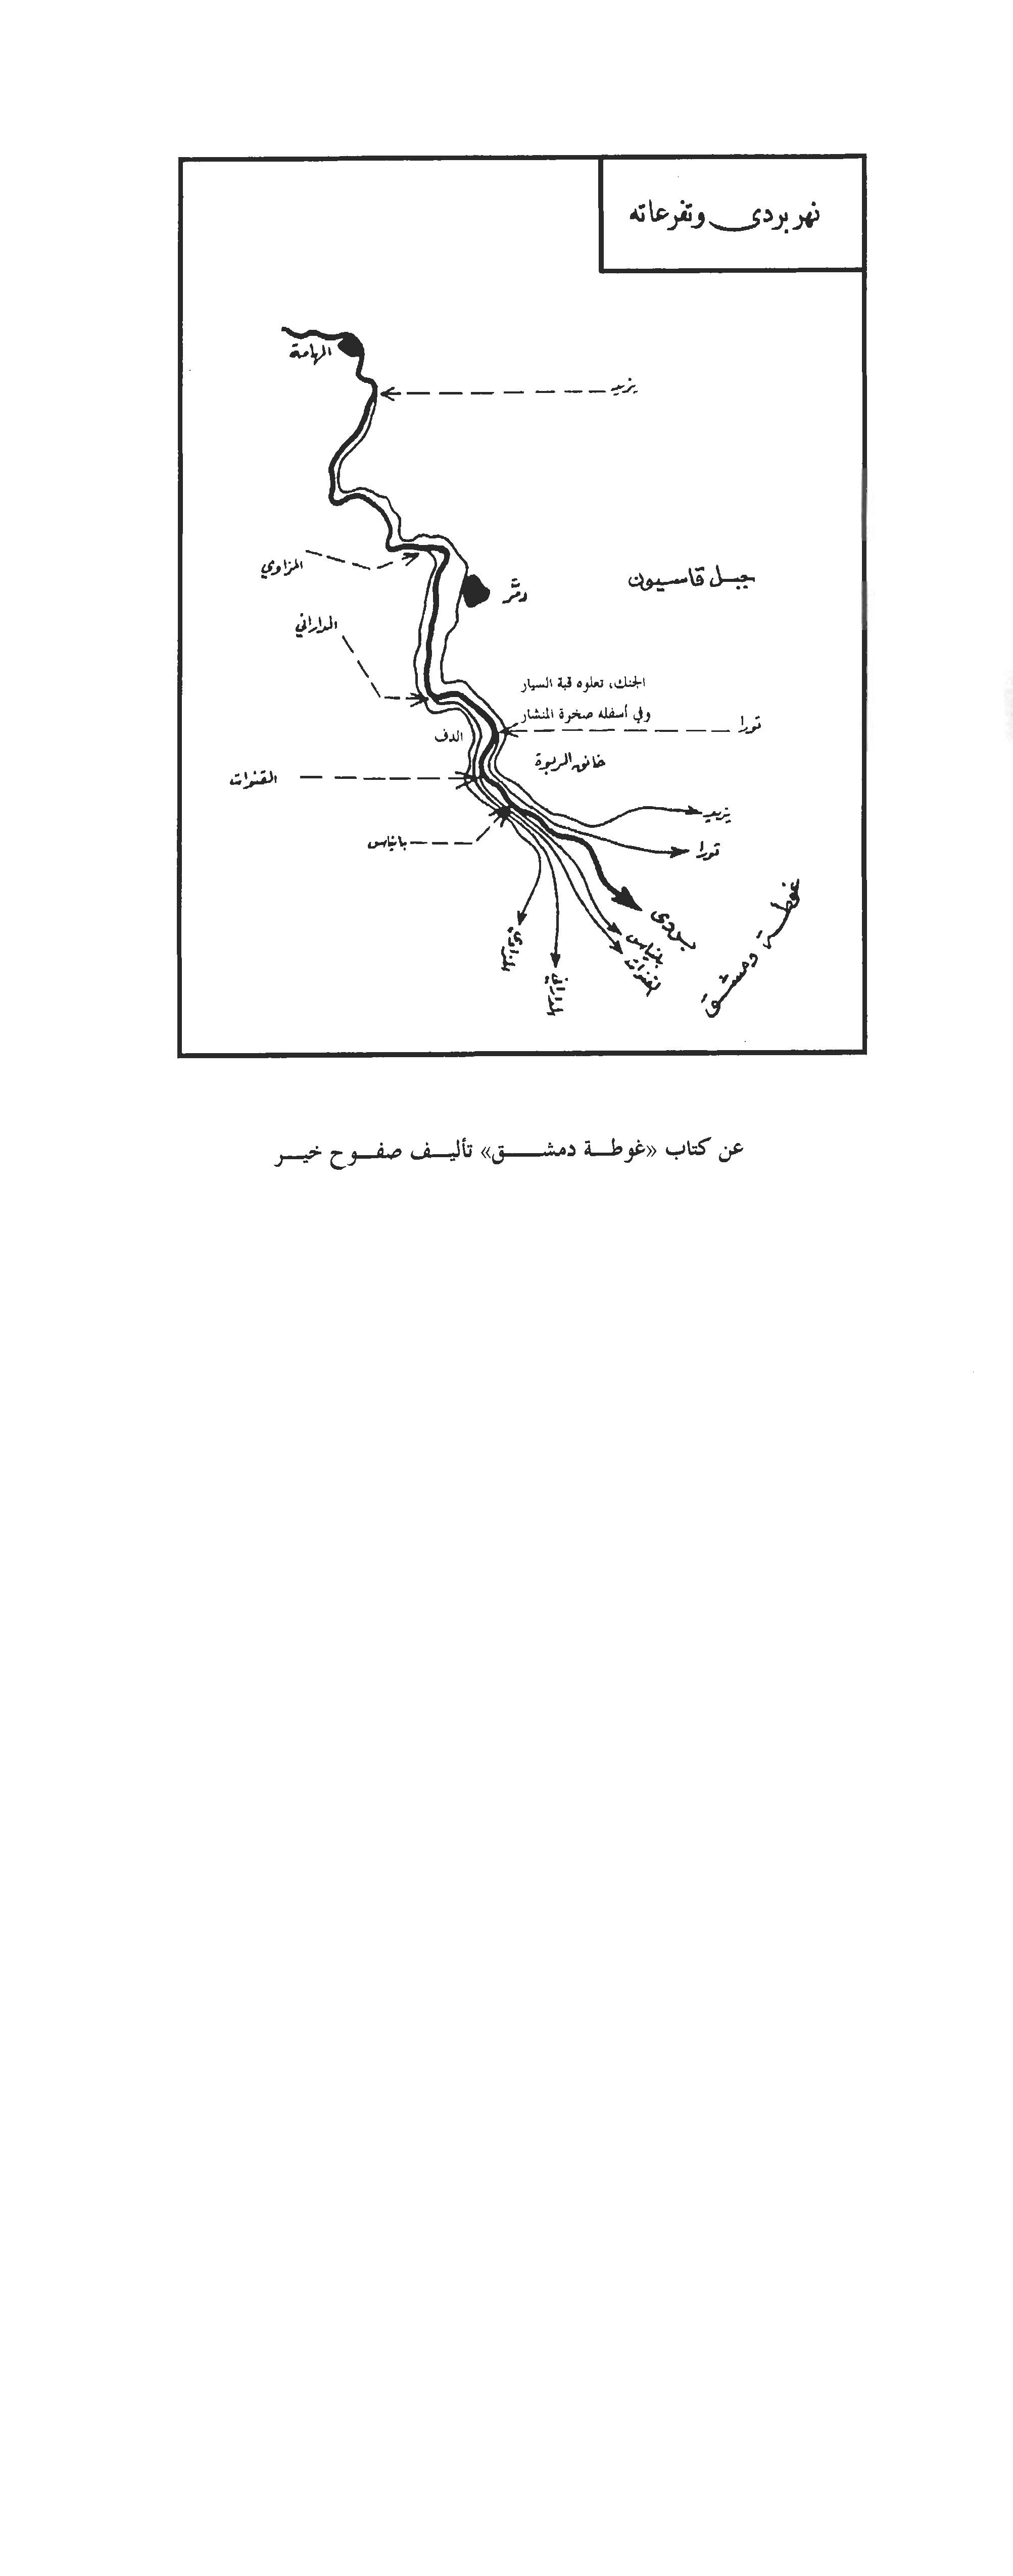 نهر بردى وتفرعاته
الهامة
يزيد
المزاوي
جبل قاسيون
دمَّر
الداراني
الجنك، تعلوه قبة السيار
وفي أسفله صخرة المنشار
تورا
الدف
خانق الربوة
القنوات
يزيد
بانياس
تورا
بردى
بانياس
القنوات
المزاوي
الداراني
غوطة دمشق
عن كتاب «غوطة دمشق» تأليف صفوح خير